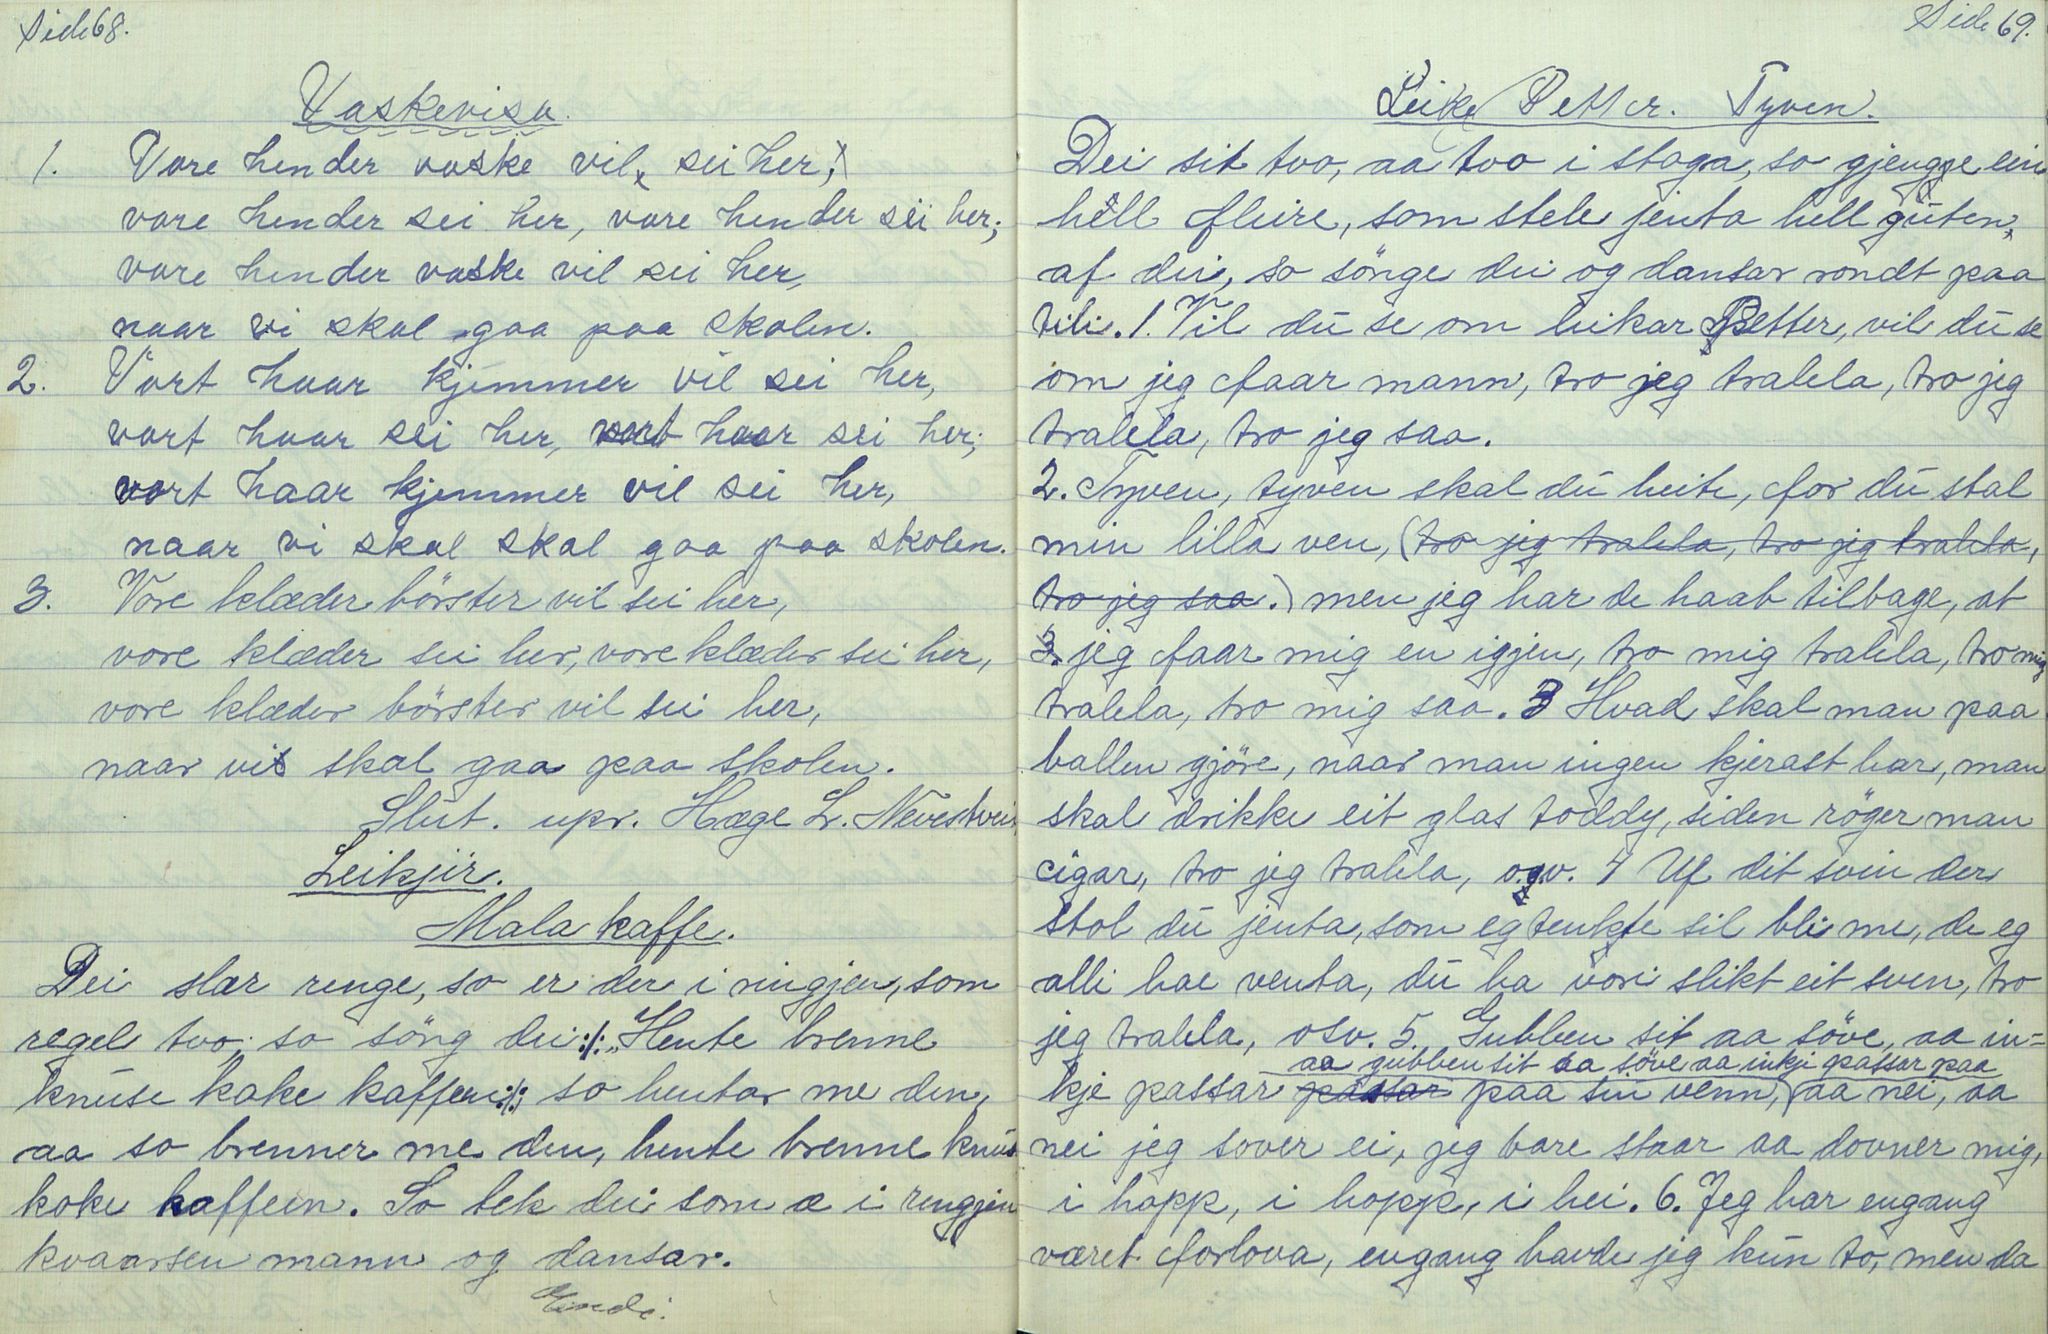 Side 68.
Vaskevisa.
1. Vore hender vaske vil, sei her,
vore hender sei her, vore hender sei her;
vore hender vaske vil sei her,
naar vi skal gaa paa skolen.
2. Vort haar kjemmer vil sei her,
vort haar sei her, vort haar sei her;
vort haar kjemmer vil sei her,
naar vi skal skal gaa paa skolen.
3. Vore klæder börster vil sei her,
vore klæder sei her, vore klæder sei her,
vore klæder börster vil sei her,
naar vi skal gaa paa skolen.
Slut. upr. Hæge L. Nevestveit
Leikjir.
Mala kaffe.
Dei slær renge, so er der i ringjen, som
regel tvo; so söng dei :/: „Hente brenne
knuse koke kaffeen :/: so hentar me den,
aa so brenner me den, hente brenne knus
koke kaffeen. So tek dei som æ i rengjen
kvaarsen mann og dansar.
Endi.
Side 69.
Leike Petter. Tyven.
Dei sit tvo, aa tvo i stoga, so gjenge ein
hell fleire, som stele jenta hell guten,
af dei, so sönge dei og dansar rondt paa
tili. 1. Vil du se om leikar Petter, vil du se
om jeg faar mann, tro jeg tralela, tro jeg
tralela, tro jeg saa.
2. Tyven, tyven skal du heite, for du stal
min lilla ven, (tro jeg tralela, tro jeg tralela,
tro jeg saa.) men jeg har de haab tilbage, at
3. jeg faar mig en igjen, tro mig tralela, tro mig
tralela, tro mig saa. 3 Hvad skal man paa
ballen gjöre, naar man ingen kjerast har, man
skal drikke eit glas toddy, siden röger man
cigar, tro jeg tralela, o.s.v. 4 Uf dit svin der
stol du jenta, som eg tenkte sil bli me, de eg
alli hae venta, du ha vori slikt eit sven, tro
jeg tralela, osv. 5. Gubben sit aa söve, aa in=
aa gubben sit aa söve aa inkje passar paa
kje passar passar paa sin venn, aa nei, aa
nei jeg sover ei, jeg bare staar aa dovner mig,
i hopp, i hopp, i hei. 6. Jeg har engang
været forlova, engang havde jeg kun to, men da